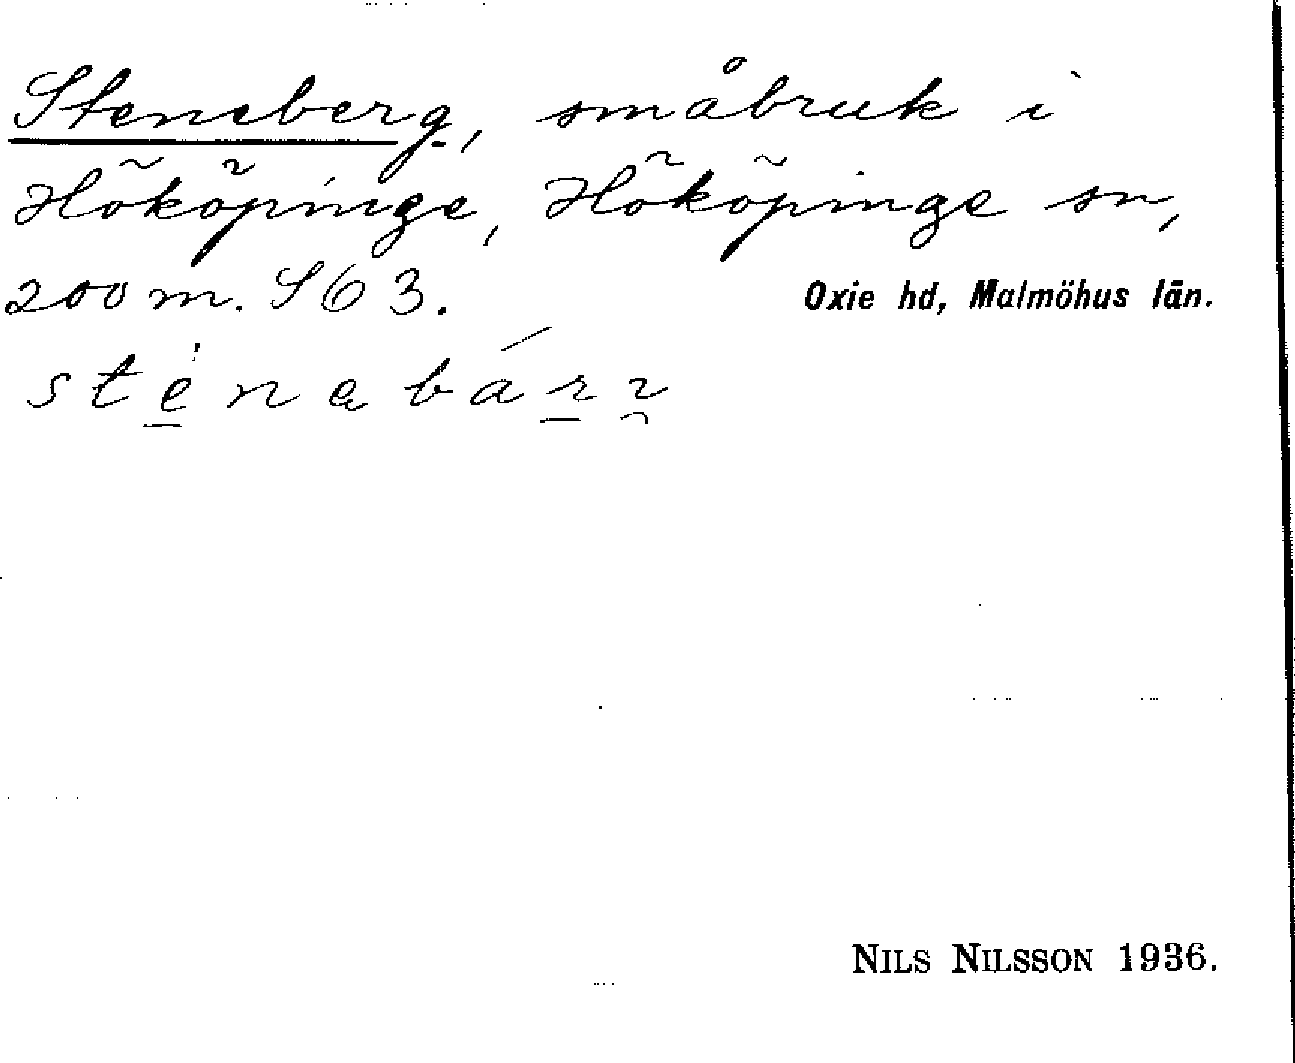 Steneberg, småbruk i
Hököpinge, Hököpinge sn,
200 m. S 63. Oxie hd, Malmöhus län.
NILS NILSSON 1936.